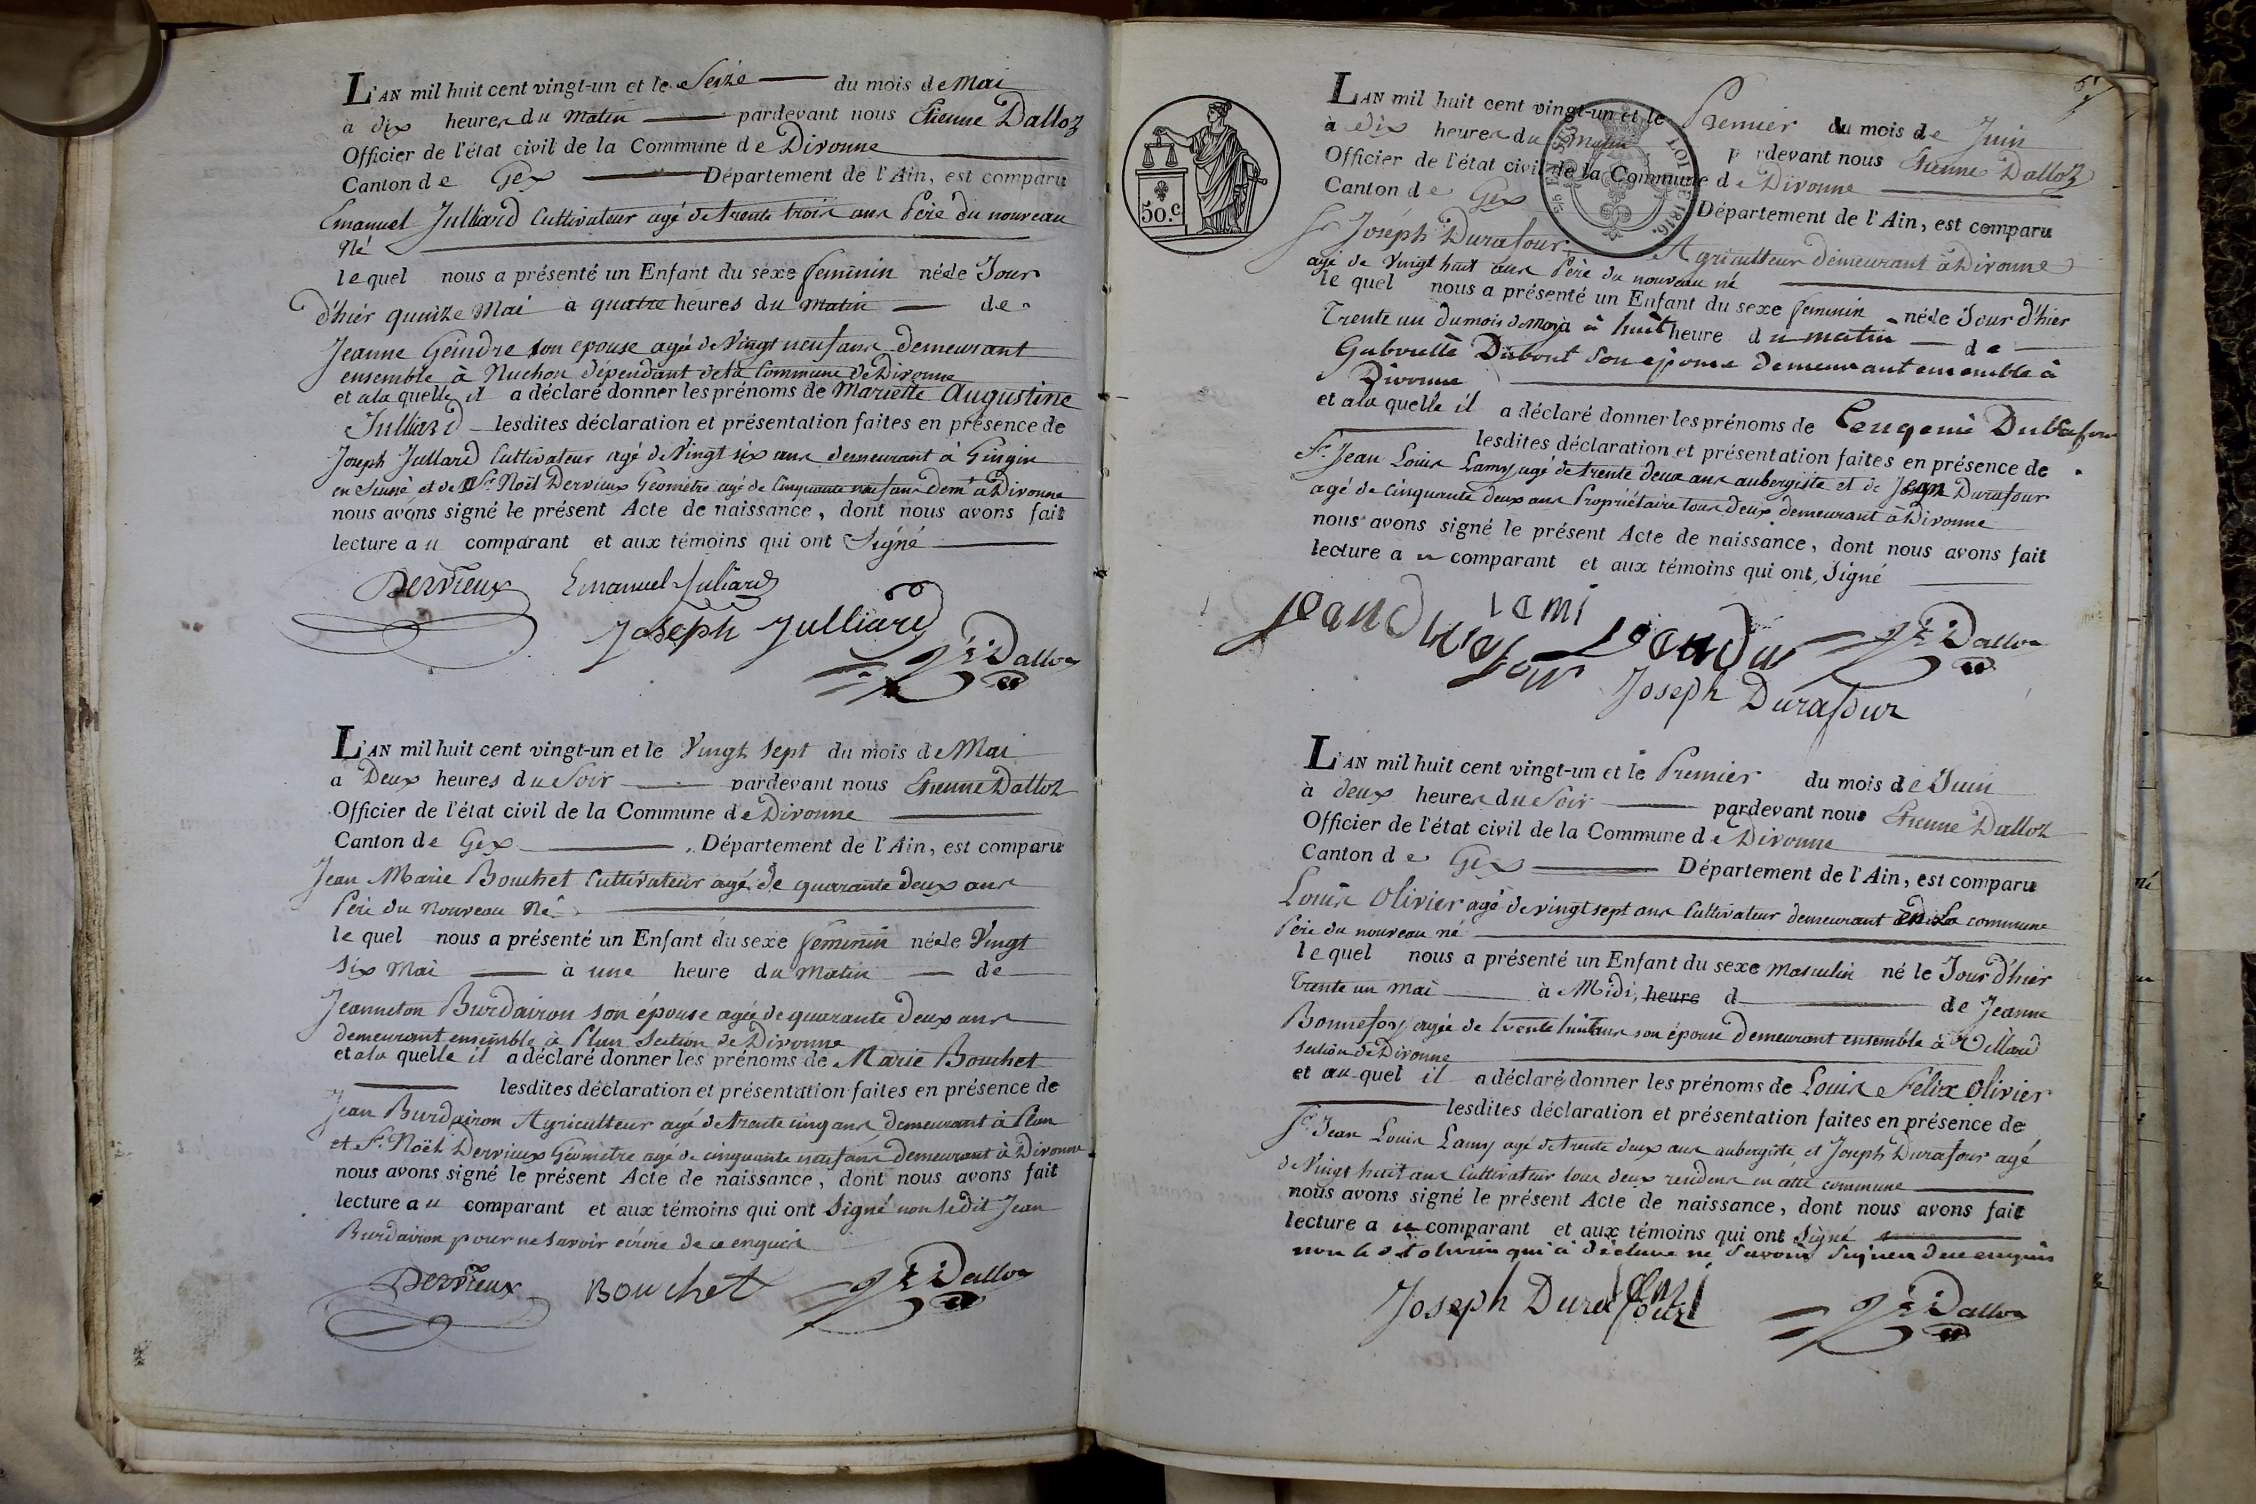 L'AN mil huit cent vingt-un et le Seize du mois de Mai
à dix heures du Matin pardevant nous Etienne Dalloz
Officier de l'état civil de la Commune de Divonne
Canton de Gex Département de l'Ain, est comparu
Emanuel Julliard Cultivateur agé de trente trois ans Père du nouveau
Né
lequel nous a présenté un Enfant du sexe feminin née le Jour
d'hier quinze Mai à quatre heures du Matin de
Jeanne Geindre son epouse agée de Vingt neuf ans demeurant
ensemble à Nuchon dépendant de la Commune de Divonne
et a la quelle il a déclaré donner les prénoms de Mariette Augustine
Julliard lesdites déclaration et présentation faites en présence de
Joseph Jullard Cultivateur agé de Vingt six ans demeurant à Gingin
en Suisse et de Sr. Noël Dervieux Geomètre agé de Cinquante neuf ans demt. à Divonne
nous avons signé le présent Acte de naissance, dont nous avons fait
lecture au comparant et aux témoins qui ont Signé
Dervieux Emanuel Juliard
Joseph Julliard
Dalloz
L'AN mil huit cent vingt-un et le Vingt Sept du mois de Mai
a Deux heures du Soir pardevant nous Etienne Dalloz
Officier de l'état civil de la Commune de Divonne
Canton de Gex Département de l'Ain, est comparu
Jean Marie Bouchet Cultivateur agé de quarante deux ans
Père du Nouveau Né
lequel nous a présenté un Enfant du sexe féminin née le Vingt
Six Mai à une heure du Matin de
Jeanneton Burdairon son épouse agée de quarante Deux ans
demeurant ensemble à Plun Section de Divonne
et a la quelle il a déclaré donner les prénoms de Marie Bouchet
lesdites déclaration et présentation faites en présence de
Jean Burdairon Agriculteur agé de trente cinq ans demeurant à Plun
et Sr. Noël Dervieux Géomètre agé de cinquante neuf ans demeurant à Divonne
nous avons signé le présent Acte de naissance, dont nous avons fait
lecture au comparant et aux témoins qui ont Signé non le dit Jean
Burdairon pour ne Savoir écrire de ce enquis
Dervieux Bouchet Dalloz
50.C
LOI DE 1816
L'AN mil huit cent vingt-un et le Premier du mois de Juin
à dix heures du Matin pardevant nous Etienne Dalloz
Officier de l'état civil de la Commune de Divonne
Canton de Gex Département de l'Ain, est comparu
Sr. Joseph Durafour Agriculteur demeurant à Divonne
agé de Vingt huit ans Père du nouveau né
lequel nous a présenté un Enfant du sexe feminin née le Jour d'hier
Trente un du mois de May à huit heure du matin de
Dubout son epouse demeurant ensemble à
Divonne
et a la quelle il a déclaré donner les prénoms de
lesdites déclaration et présentation faites en présence de
Sr. Jean Louis Lamy agé de trente deux ans aubergiste et de Jean Durafour
agé de Cinquante deux ans Propriétaire tous deux demeurant à Divonne
nous avons signé le présent Acte de naissance, dont nous avons fait
lecture au comparant et aux témoins qui ont Signé
lami
Dalloz
Joseph Durafour
L'AN mil huit cent vingt-un et le Premier du mois de Juin
à deux heures du Soir pardevant nous Etienne Dalloz
Officier de l'état civil de la Commune de Divonne
Canton de Gex Département de l'Ain, est comparu
Louis Olivier agé de vingt sept ans Cultivateur demeurant en La commune
Père du nouveau né
lequel nous a présenté un Enfant du sexe masculin né le Jour d'hier
Trente un Mai à Midi, heure d de Jeanne
Bonnefoy agée de trente huit ans son épouse demeurant ensemble à Villard
section de Divonne
et au quel il a déclaré donner les prénoms de Louis Felix Olivier
lesdites déclaration et présentation faites en présence de
Sr. Jean Louis Lamy agé de trente deux ans aubergiste et Joseph Durafour agé
de Vingt huit ans Cultivateur tous deux commune
nous avons signé le présent Acte de naissance, dont nous avons fait
lecture au comparant et aux témoins qui ont Signé
non le dt olivier qui a déclaré ne Savoir Signer de ce enquis
Joseph Durafour lami Dalloz